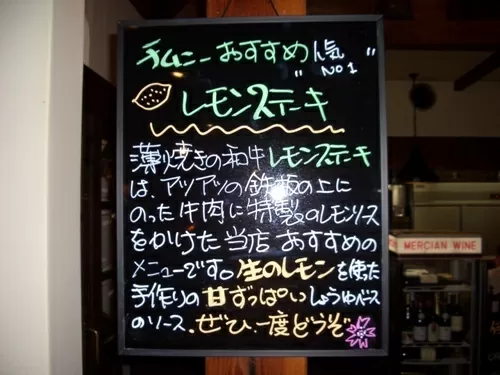 チムニーおすすめ人気
"NO1"
レモンステーキ
薄焼きの和牛レモンステーキ
は、アツアツの鉄板の上に
のった牛肉に特製のレモンソース
をかけた当店おすすめの
メニューです。生のレモンを使った
手作りの甘ずっぱいしょうゆベース
のソース。ぜひ、一度どうぞ
MERCIAN WINE